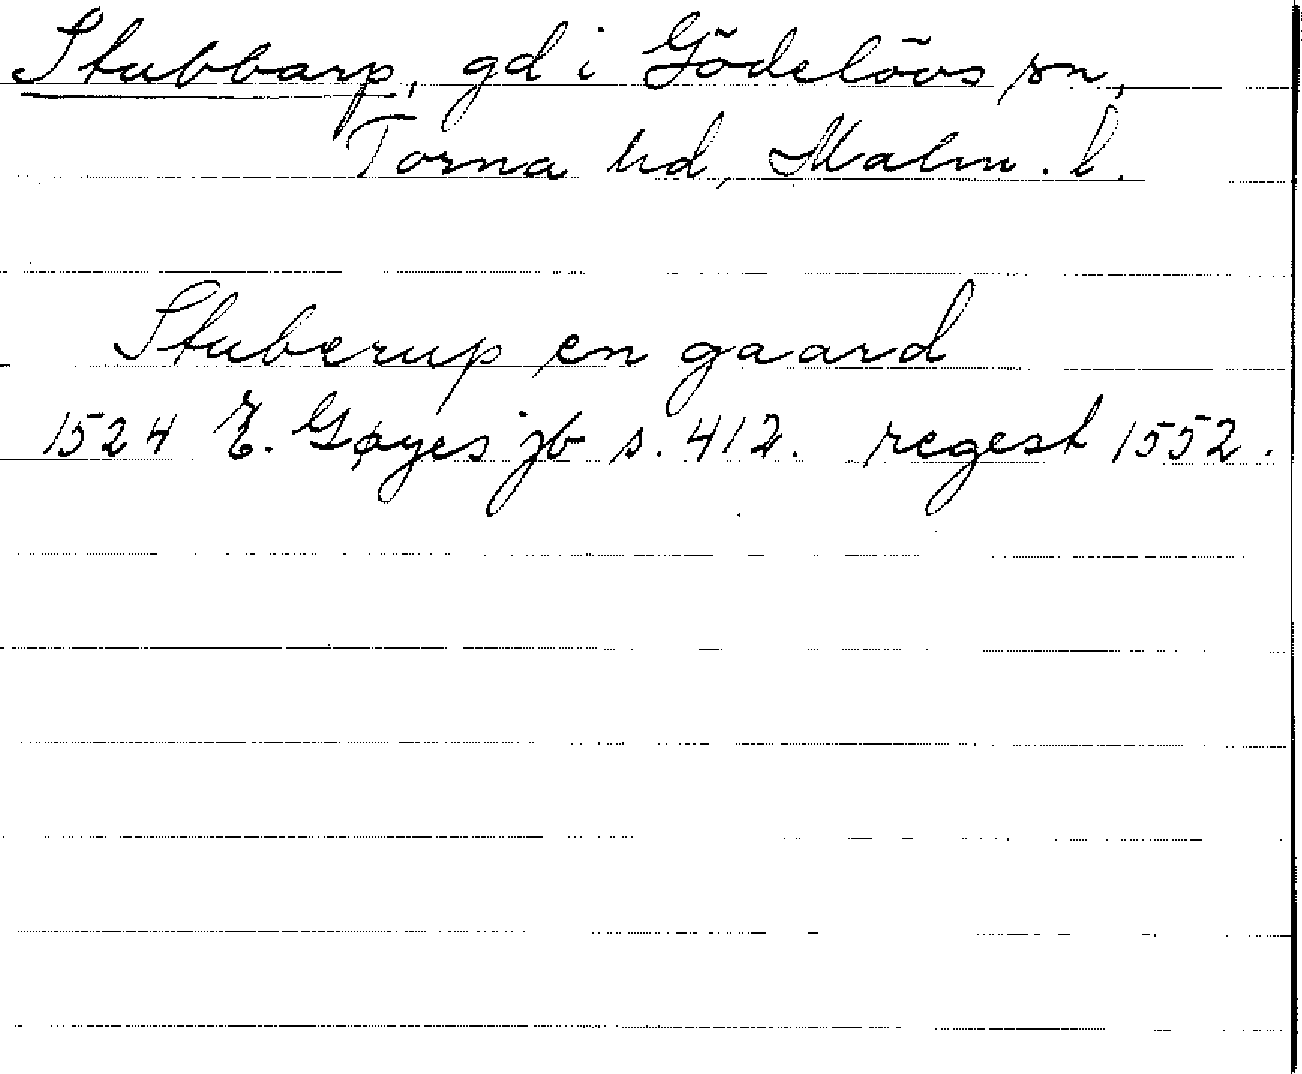 Stubbarp, gd i Gödelövs sn,
Torna hd, Malm. l.
Stuberup en gaard
1524 E. Gøyes jb s. 412. regest 1552.